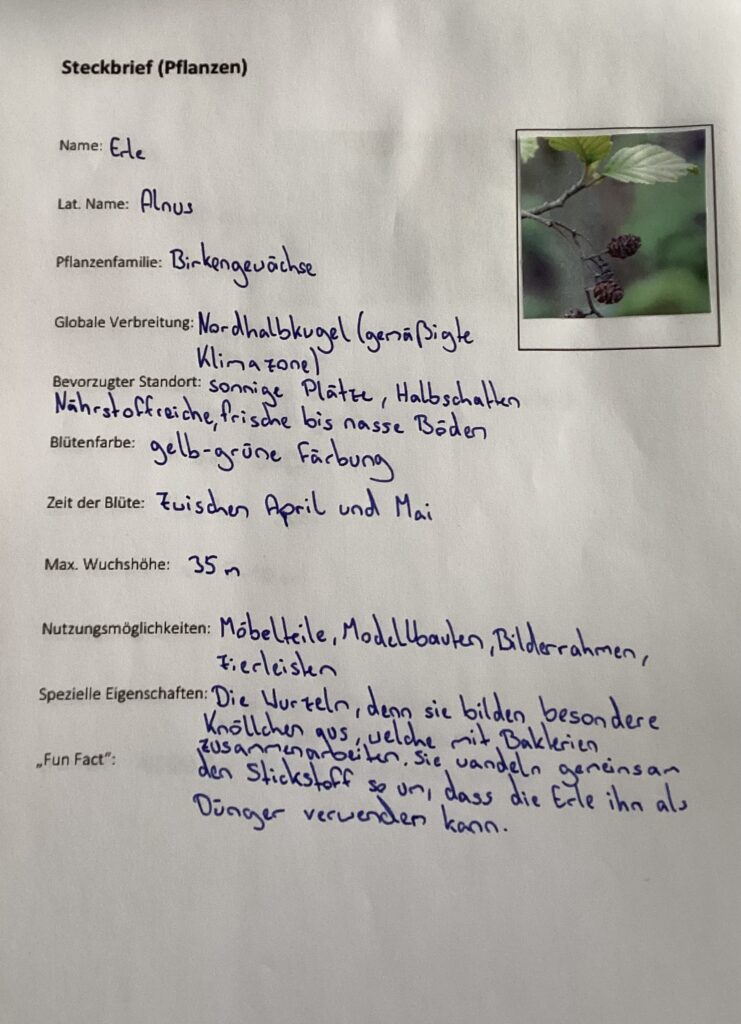 Steckbrief (Pflanzen)
Name: Erle
Lat. Name: Alnus
Pflanzenfamilie: Birkengewächse
Globale Verbreitung: Nordhalbkugel (gemäßigte
Klimazone)
Bevorzugter Standort: sonnige Plätze, Halbschatten
Nährstoffreiche, frische bis nasse Böden
Blütenfarbe: gelb-grüne Färbung
Zeit der Blüte: Zwischen April und Mai
Max. Wuchshöhe: 35 m
Nutzungsmöglichkeiten: Möbelteile, Modellbauten, Bilderrahmen,
Zierleisten
Spezielle Eigenschaften: Die Wurzeln, denn sie bilden besondere
Knöllchen aus, welche mit Bakterien
zusammenarbeiten. Sie wandeln gemeinsam
„Fun Fact“:
den Stickstoff so um, dass die Erle ihn als
Dünger verwenden kann.